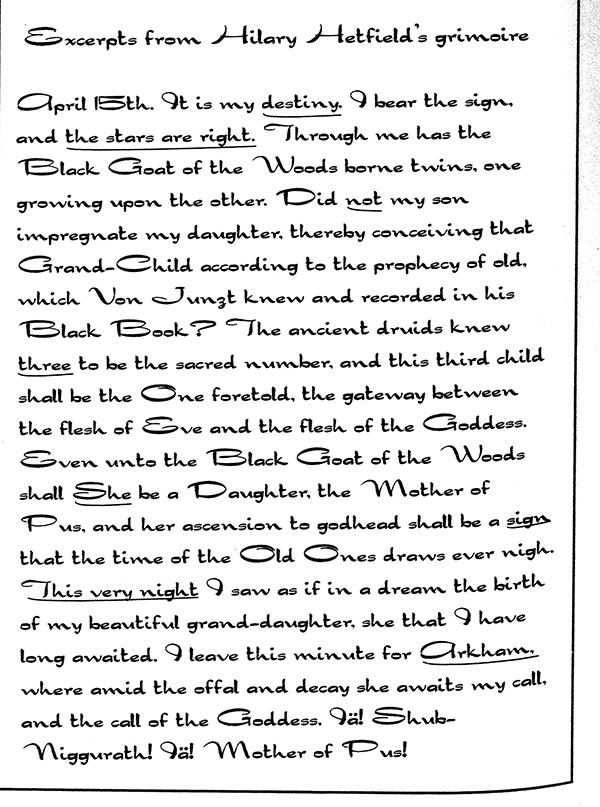 Excerpts from Hilary Hetfield's grimoire
April 15th. It is my destiny. I bear the sign,
and the stars are right. Through me has the
Black Goat of the Woods borne twins, one
growing upon the other. Did not my son
impregnate my daughter, thereby conceiving that
Grand-Child according to the prophecy of old,
which Von Junzt knew and recorded in his
Black Book? The ancient druids knew
three to be the sacred number, and this third child
shall be the One foretold, the gateway between
the flesh of Eve and the flesh of the Goddess.
Even unto the Black Goat of the Woods
shall She be a Daughter, the Mother of
Pus, and her ascension to godhead shall be a sign
that the time of the Old Ones draws ever nigh.
This very night I saw as if in a dream the birth
of my beautiful grand-daughter, she that I have
long awaited. I leave this minute for Arkham,
where amid the offal and decay she awaits my call,
and the call of the Goddess. Iä! Shub-
Niggurath! Iä! Mother of Pus!